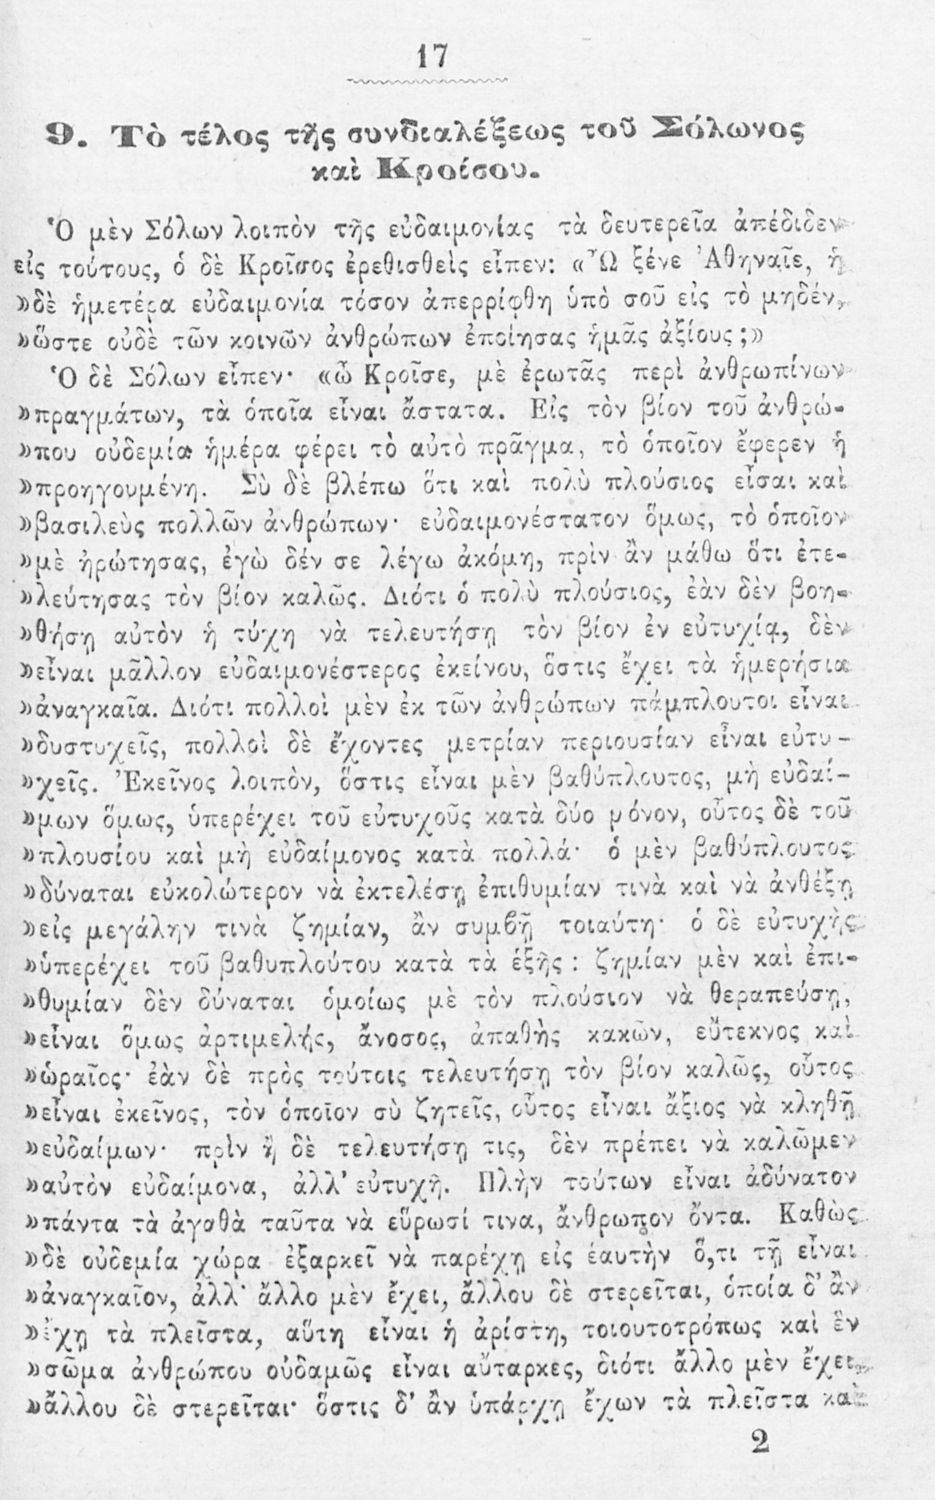 17
9. Τὸ τέλος τῆς συνδιαλέξεως τοῦ Σόλωνος
καὶ Κροίσου.
Ὁ μὲν Σόλων λοιπὸν τῆς εὐδαιμονίας τὰ δευτερεῖα ἀπέδιδεν
εἰς τούτους, ὁ δὲ Κροῖσος ἐρεθισθεὶς εἶπεν: «Ὦ ξένε Ἀθηναῖε, ἡ
»δὲ ἡμετέρα εὐδαιμονία τόσον ἀπερρίφθη ὑπὸ σοῦ εἰς τὸ μηδέν,
»ὥστε οὐδὲ τῶν κοινῶν ἀνθρώπων ἐποίησας ἡμᾶς ἀξίους;»
Ὁ δὲ Σόλων εἶπεν· «ὦ Κροῖσε, μὲ ἐρωτᾷς περὶ ἀνθρωπίνων
»πραγμάτων, τὰ ὁποῖα εἶναι ἄστατα. Εἰς τὸν βίον τοῦ ἀνθρώ-
»που οὐδεμία ἡμέρα φέρει τὸ αὐτὸ πρᾶγμα, τὸ ὁποῖον ἔφερεν ἡ
»προηγουμένη. Σὺ δὲ βλέπω ὅτι καὶ πολὺ πλούσιος εἶσαι καὶ
»βασιλεὺς πολλῶν ἀνθρώπων· εὐδαιμονέστατον ὅμως, τὸ ὁποῖον
»μὲ ἠρώτησας, ἐγὼ δέν σε λέγω ἀκόμη, πρὶν ἂν μάθω ὅτι ἐτε-
»λεύτησας τὸν βίον καλῶς. Διότι ὁ πολὺ πλούσιος, ἐὰν δὲν βοη-
»θήσῃ αὐτὸν ἡ τύχη νὰ τελευτήσῃ τὸν βίον ἐν εὐτυχίᾳ, δὲν
»εἶναι μᾶλλον εὐδαιμονέστερος ἐκείνου, ὅστις ἔχει τὰ ἡμερήσια
»ἀναγκαῖα. Διότι πολλοὶ μὲν ἐκ τῶν ἀνθρώπων πάμπλουτοι εἶναι
»δυστυχεῖς, πολλοὶ δὲ ἔχοντες μετρίαν περιουσίαν εἶναι εὐτυ-
»χεῖς. Ἐκεῖνος λοιπὸν, ὅστις εἶναι μὲν βαθύπλουτος, μὴ εὐδαί-
»μων ὅμως, ὑπερέχει τοῦ εὐτυχοῦς κατὰ δύο μόνον, οὗτος δὲ τοῦ
»πλουσίου καὶ μὴ εὐδαίμονος κατὰ πολλά· ὁ μὲν βαθύπλουτος
»δύναται εὐκολώτερον νὰ ἐκτελέσῃ ἐπιθυμίαν τινὰ καὶ νὰ ἀνθέξῃ
»εἰς μεγάλην τινὰ ζημίαν, ἂν συμβῇ τοιαύτη· ὁ δὲ εὐτυχὴς
»ὑπερέχει τοῦ βαθυπλούτου κατὰ τὰ ἑξῆς: ζημίαν μὲν καὶ ἐπι-
»θυμίαν δὲν δύναται ὁμοίως μὲ τὸν πλούσιον νὰ θεραπεύσῃ,
»εἶναι ὅμως ἀρτιμελής, ἄνοσος, ἀπαθὴς κακῶν, εὔτεκνος καὶ
»ὡραῖος· ἐὰν δὲ πρὸς τούτοις τελευτήσῃ τὸν βίον καλῶς, οὗτος
»εἶναι ἐκεῖνος, τὸν ὁποῖον σὺ ζητεῖς, οὗτος εἶναι ἄξιος νὰ κληθῇ
»εὐδαίμων· πρὶν ἢ δὲ τελευτήσῃ τις, δὲν πρέπει νὰ καλῶμεν
»αὐτὸν εὐδαίμονα, ἀλλ' εὐτυχῆ. Πλὴν τούτων εἶναι ἀδύνατον
»πάντα τὰ ἀγαθὰ ταῦτα νὰ εὕρωσί τινα, ἄνθρωπον ὄντα. Καθὼς
»δὲ οὐδεμία χώρα ἐξαρκεῖ νὰ παρέχῃ εἰς ἑαυτὴν ὅ,τι τῇ εἶναι
»ἀναγκαῖον, ἀλλ' ἄλλο μὲν ἔχει, ἄλλου δὲ στερεῖται, ὁποία δ' ἂν
»ἔχῃ τὰ πλεῖστα, αὕτη εἶναι ἡ ἀρίστη, τοιουτοτρόπως καὶ ἓν
»σῶμα ἀνθρώπου οὐδαμῶς εἶναι αὔταρκες, διότι ἄλλο μὲν ἔχει,
»ἄλλου δὲ στερεῖται· ὅστις δ' ἂν ὑπάρχῃ ἔχων τὰ πλεῖστα καὶ
2